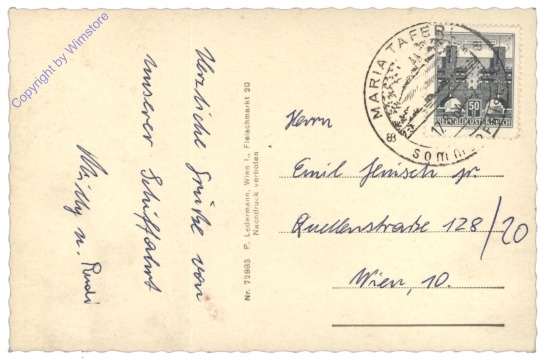 Copyright by Wimstore
Herzliche Grüße von
unserer Schiffahrt
Milly u. Rudi
Nr. 72985 P. Ledermann, Wien I., Fleischmarkt 20
Nachdruck verboten
MARIA TAFER
50
Herrn
Emil Jenisch jr.
Quellenstraße 128/20
Wien, 10.